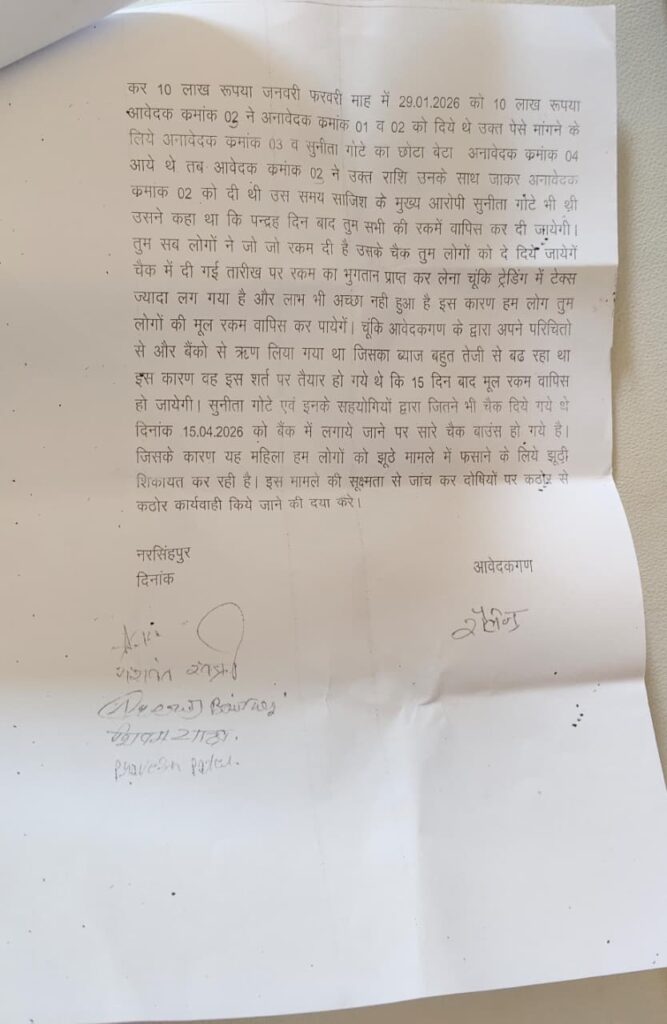 कर 10 लाख रूपया जनवरी फरवरी माह में 29.01.2026 को 10 लाख रूपया
आवेदक क्रमांक 02 ने अनावेदक क्रमांक 01 व 02 को दिये थे उक्त पैसे मांगने के
लिये अनावेदक क्रमांक 03 व सुनीता गोटे का छोटा बेटा अनावेदक क्रमांक 04
आये थे तब आवेदक क्रमांक 02 ने उक्त राशि उनके साथ जाकर अनावेदक
क्रमांक 02 को दी थी उस समय साजिश के मुख्य आरोपी सुनीता गोटे भी थी
उसने कहा था कि पन्द्रह दिन बाद तुम सभी की रकमें वापिस कर दी जायेगी।
तुम सब लोगों ने जो जो रकम दी है उसके चैक तुम लोगों को दे दिये जायेगें
चैक में दी गई तारीख पर रकम का भुगतान प्राप्त कर लेना चूंकि ट्रेडिंग में टेक्स
ज्यादा लग गया है और लाभ भी अच्छा नही हुआ है इस कारण हम लोग तुम
लोगों की मूल रकम वापिस कर पायेगें। चूंकि आवेदकगण के द्वारा अपने परिचितो
से और बैंको से ऋण लिया गया था जिसका ब्याज बहुत तेजी से बढ रहा था
इस कारण वह इस शर्त पर तैयार हो गये थे कि 15 दिन बाद मूल रकम वापिस
हो जायेगी। सुनीता गोटे एवं इनके सहयोगियों द्वारा जितने भी चैक दिये गये थे
दिनांक 15.04.2026 को बैंक में लगाये जाने पर सारे चैक बाउंस हो गये है।
जिसके कारण यह महिला हम लोगों को झूठे मामले में फसाने के लिये झूठी
शिकायत कर रही है। इस मामले की सूक्ष्मता से जांच कर दोषियों पर कठोर से
कठोर कार्यवाही किये जाने की दया करे।
नरसिंहपुर
दिनांक
आवेदकगण